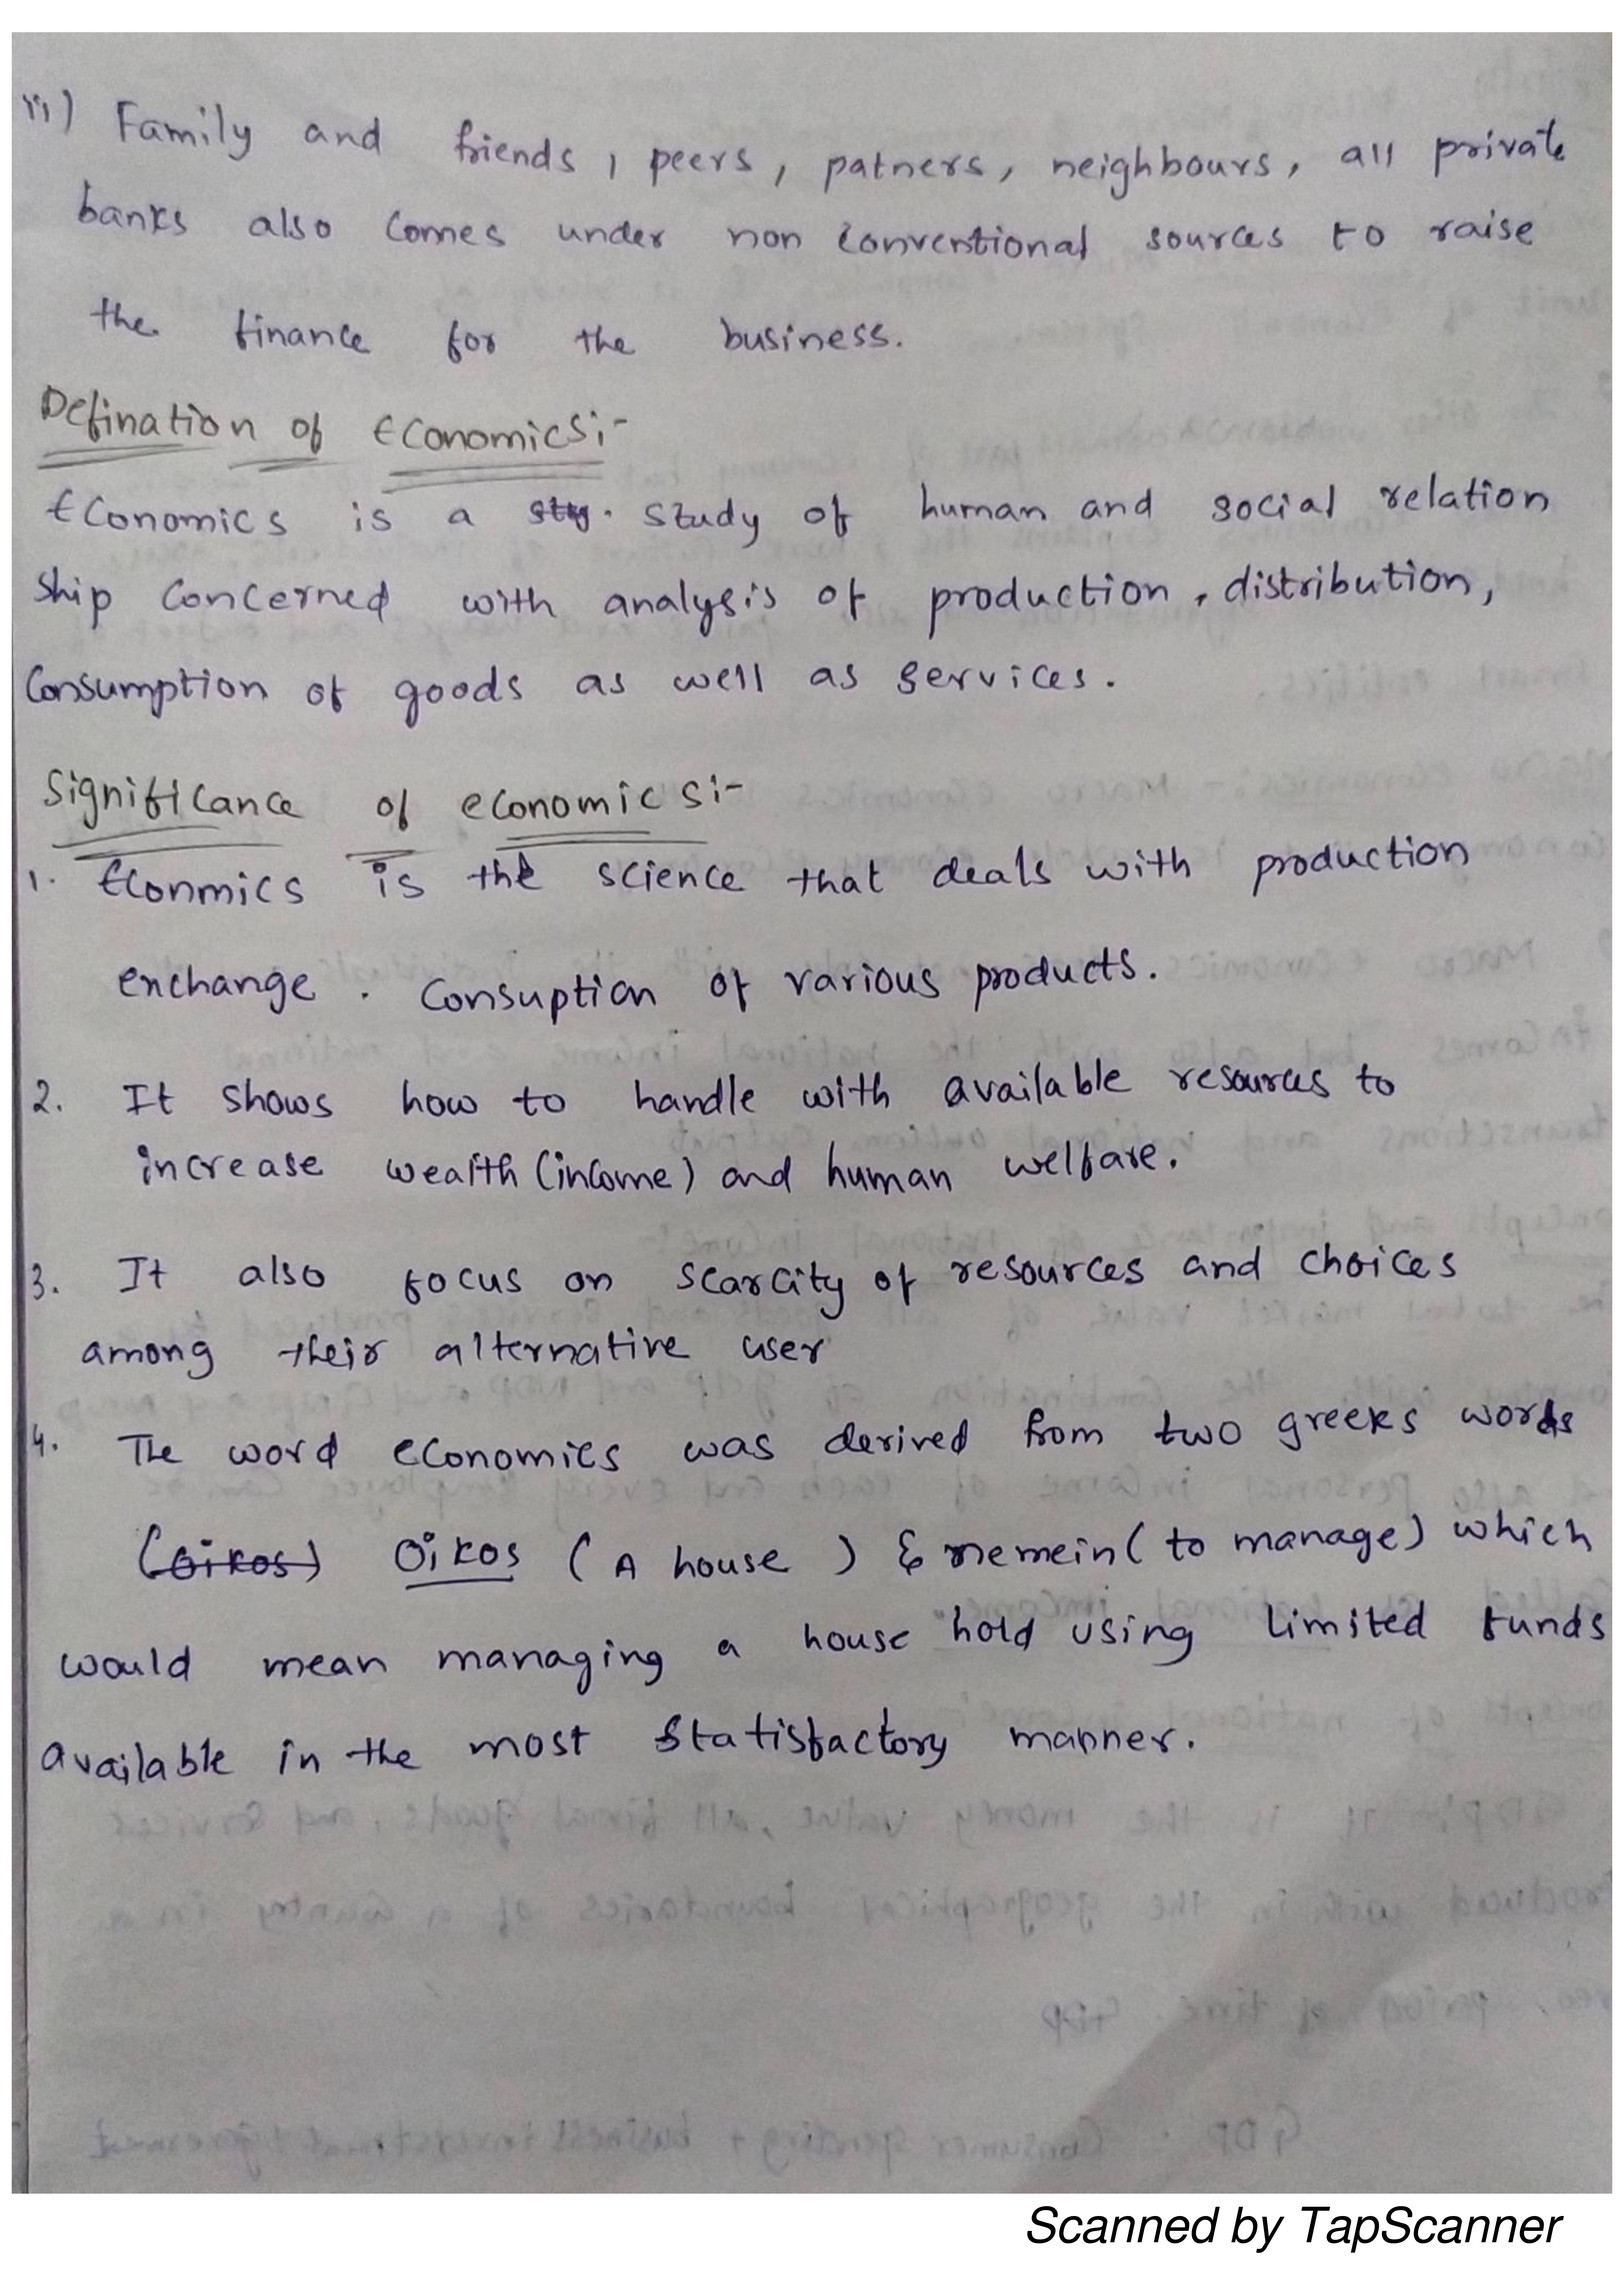 iii) Family and friends, peers, patners, neighbours, all private
banks also comes under non conventional sources to raise
the finance for the business.
Defination of Economics:-
Economics is a study of human and social relation
ship concerned with analysis of production, distribution,
consumption of goods as well as services.
Significance of economics:-
1. Econmics is the science that deals with production
exchange. Consuption of various products.
2. It shows how to handle with available resources to
increase wealth (income) and human welfare.
3. It also focus on scarcity of resources and choices
among their alternative user
4. The word economics was derived from two greeks words
(oikos) Oikos (A house) & nemein (to manage) which
would mean managing a house hold using limited funds
available in the most statisfactory manner.
Scanned by TapScanner